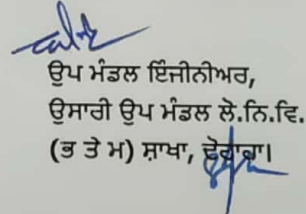 ਉਪ ਮੰਡਲ ਇੰਜੀਨੀਅਰ,
ਉਸਾਰੀ ਉਪ ਮੰਡਲ ਲੋ.ਨਿ.ਵਿ.
(ਭ ਤੇ ਮ) ਸ਼ਾਖਾ, ਦੋਰਾਹਾ।